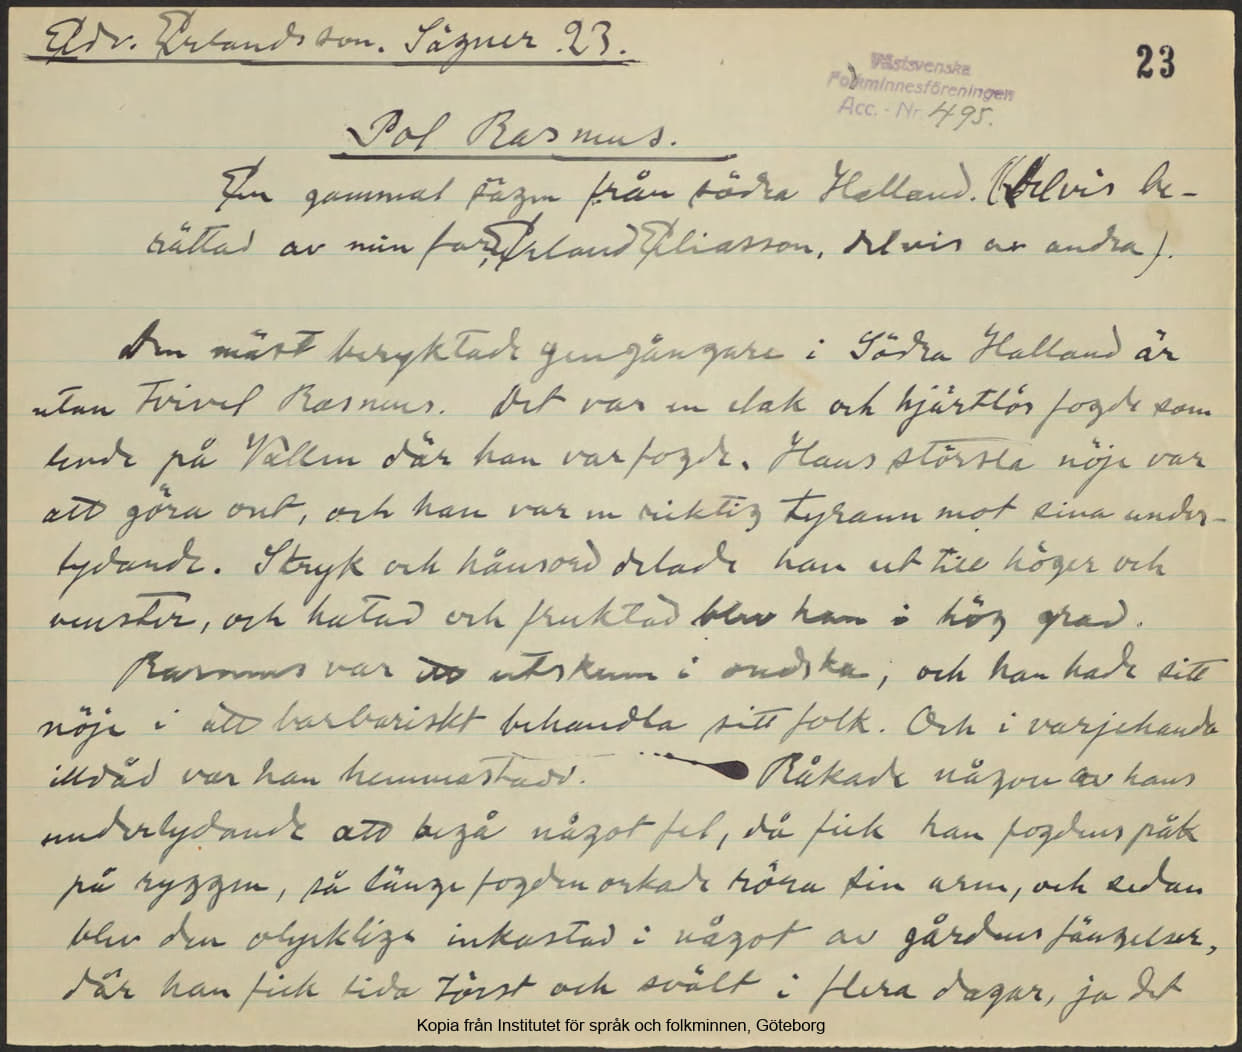 Edv. Erlandsson. Sägner 23.
23
Västsvenska
Folkminnesföreningen
Acc. - Nr. 495.
Pol Rasmus.
En gammal sägn från södra Halland. (Delvis be-
rättad av min far, Erland Eliasson, delvis av andra).
Den mäst beryktade gengångare i Södra Halland är
utan tvivel Rasmus. Det var en elak och hjärtlös fogde som
levde på Vallen där han var fogde. Hans största nöje var
att göra ont, och han var en riktig tyrann mot sina under-
lydande. Stryk och hånsord delade han ut till höger och
venster, och hatad och fruktad blev han i hög grad.
Rasmus var ett utskum i ondska, och han hade sitt
nöje i att barbariskt behandla sitt folk. Och i varjehanda
illdåd var han hemmastadd. Råkade någon av hans
underlydande att begå något fel, då fick han fogdens påk
på ryggen, så länge fogden orkade röra sin arm, och sedan
blev den olycklige inkastad i något av gårdens fängelser,
där han fick lida törst och svält i flera dagar, ja det
Kopia från Institutet för språk och folkminnen, Göteborg